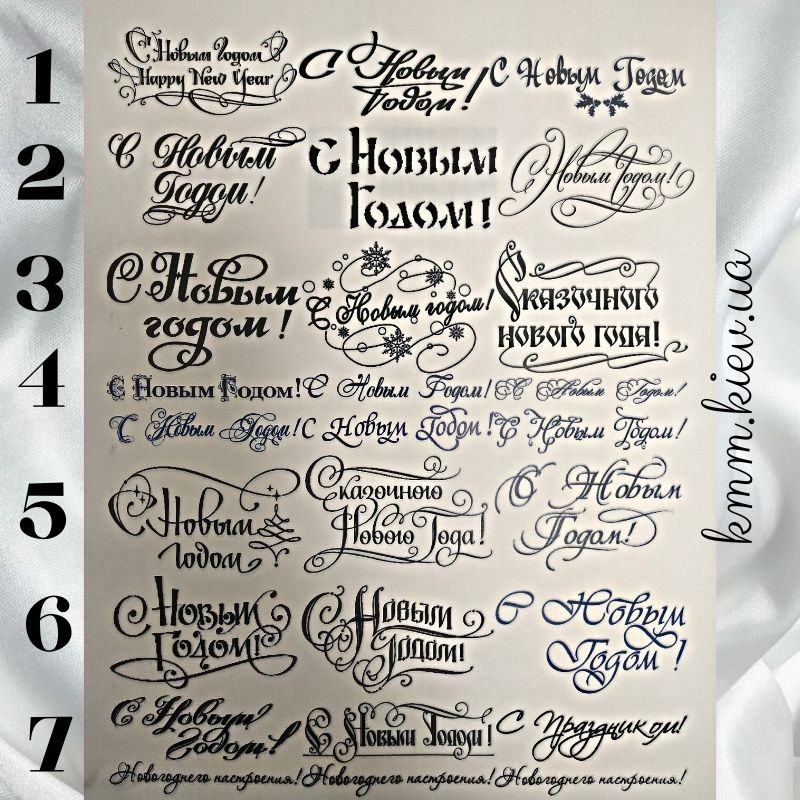 1
С Новым Годом
Happy New Year
С Новым
Годом!
С Новым Годом
2
С Новым
Годом!
С Новым
Годом!
С Новым Годом!
3
С Новым
годом!
С Новым годом!
Сказочного
нового года!
4
С Новым Годом! С Новым Годом! С Новым Годом!
С Новым Годом! С Новым Годом! С Новым Годом!
5
С Новым
Годом
Сказочного
Нового Года!
С Новым
Годом!
6
С Новым
Годом!
С Новым
Годом!
С Новым
Годом!
7
С Новым
Годом!
С Новым Годом!
С Праздником!
Новогоднего настроения! Новогоднего настроения! Новогоднего настроения!
kmm.kiev.ua